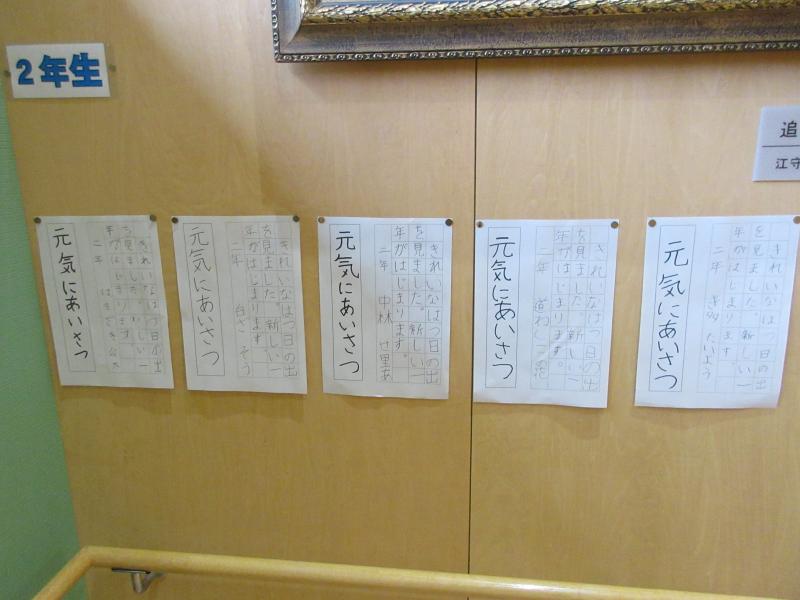 2年生
追
江守
きれいなはつ日の出
を見ました。新しい一
年がはじまります。
二年
たいよう
元気にあいさつ
きれいなはつ日の出
を見ました。新しい一
年がはじまります。
二年
元気にあいさつ
きれいなはつ日の出
を見ました。新しい一
年がはじまります。
二年 中林 せ里あ
元気にあいさつ
きれいなはつ日の出
を見ました。新しい一
年がはじまります。
二年
そう
元気にあいさつ
きれいなはつ日の出
を見ました。新しい一
年がはじまります。
二年
元気にあいさつ